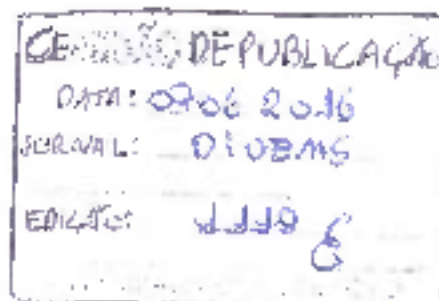 DE PUBLICAÇÃO
DATA: 07 06 2016
JORNAL: DIOEMS
EDIÇÃO: 1119